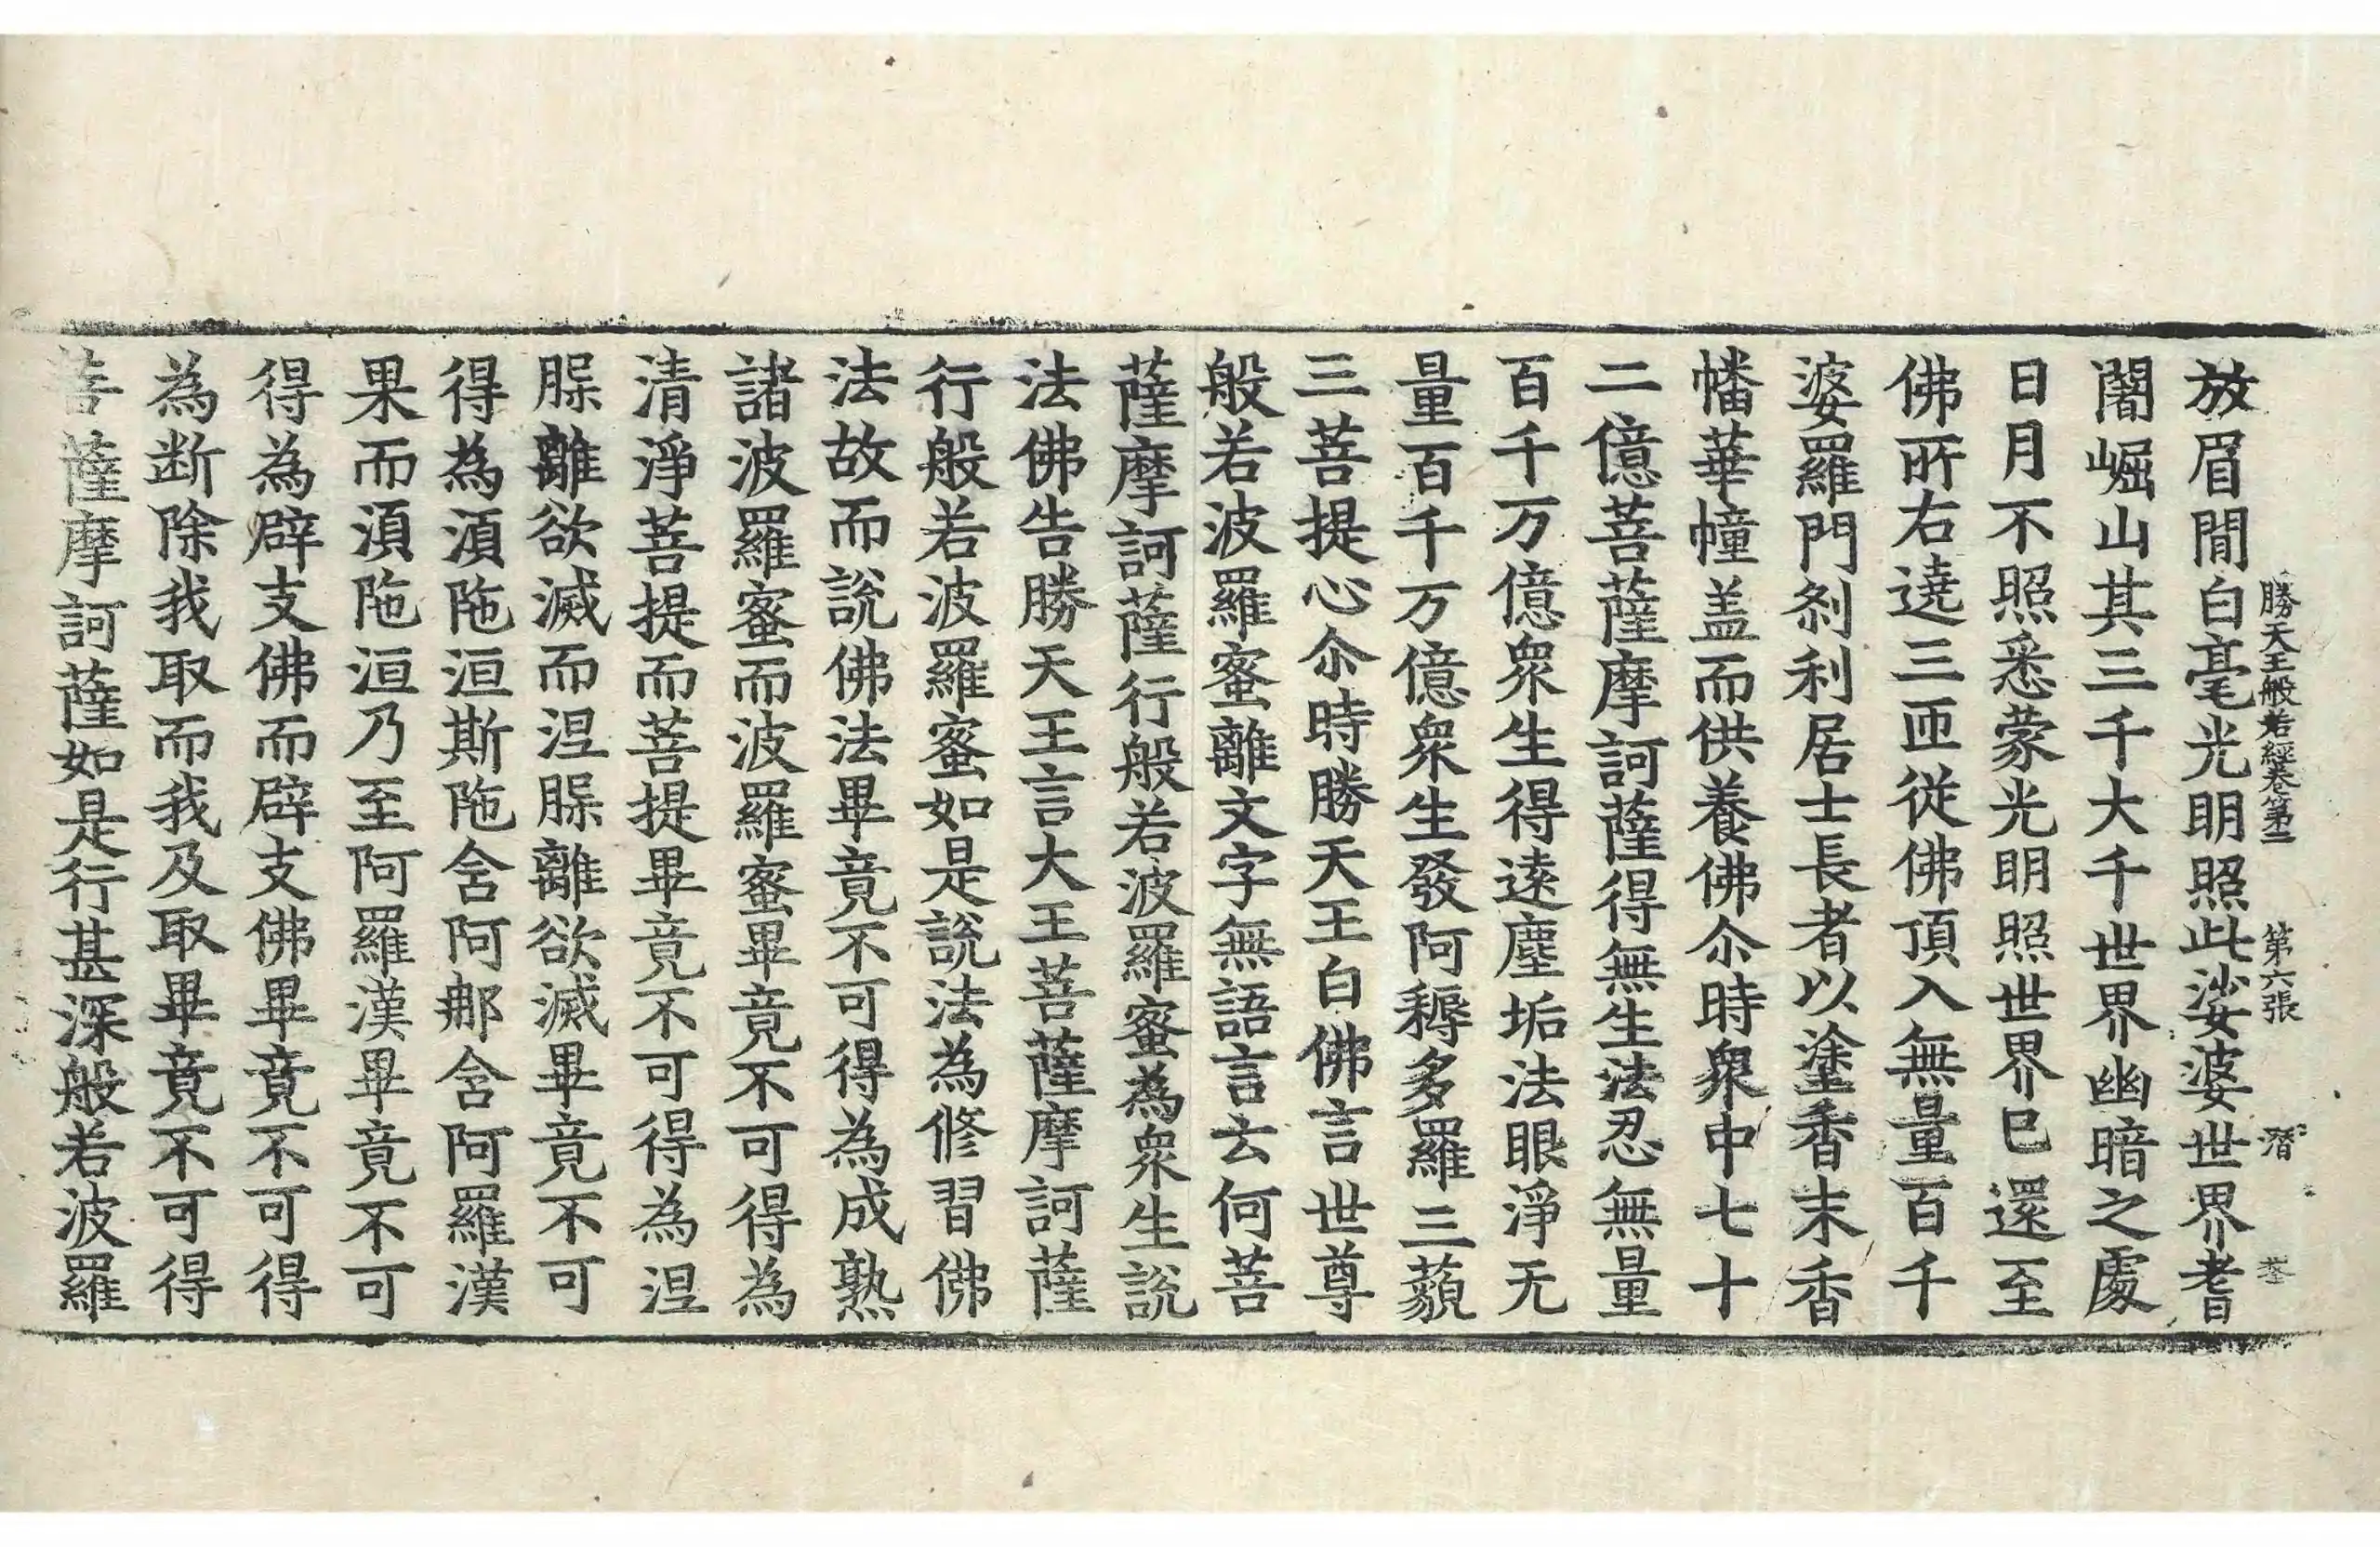 勝天王般若經卷第二 第六張 潛
放眉閒白毫光明照此娑婆世界耆
闍崛山其三千大千世界幽暗之處
日月不照悉蒙光明照世界已還至
佛所右遶三匝從佛頂入無量百千
婆羅門剎利居士長者以塗香末香
幡華幢盖而供養佛尒時衆中七十
二億菩薩摩訶薩得無生法忍無量
百千万億衆生得遠塵垢法眼淨无
量百千万億衆生發阿耨多羅三藐
三菩提心尒時勝天王白佛言世尊
般若波羅蜜離文字無語言云何菩
薩摩訶薩行般若波羅蜜為衆生説
法佛告勝天王言大王菩薩摩訶薩
行般若波羅蜜如是説法為修習佛
法故而説佛法畢竟不可得為成熟
諸波羅蜜而波羅蜜畢竟不可得為
清淨菩提而菩提畢竟不可得為涅
槃離欲滅而涅槃離欲滅畢竟不可
得為湏陁洹斯陁含阿那含阿羅漢
果而湏陁洹乃至阿羅漢畢竟不可
得為辟支佛而辟支佛畢竟不可得
為断除我取而我及取畢竟不可得
菩薩摩訶薩如是行甚深般若波羅